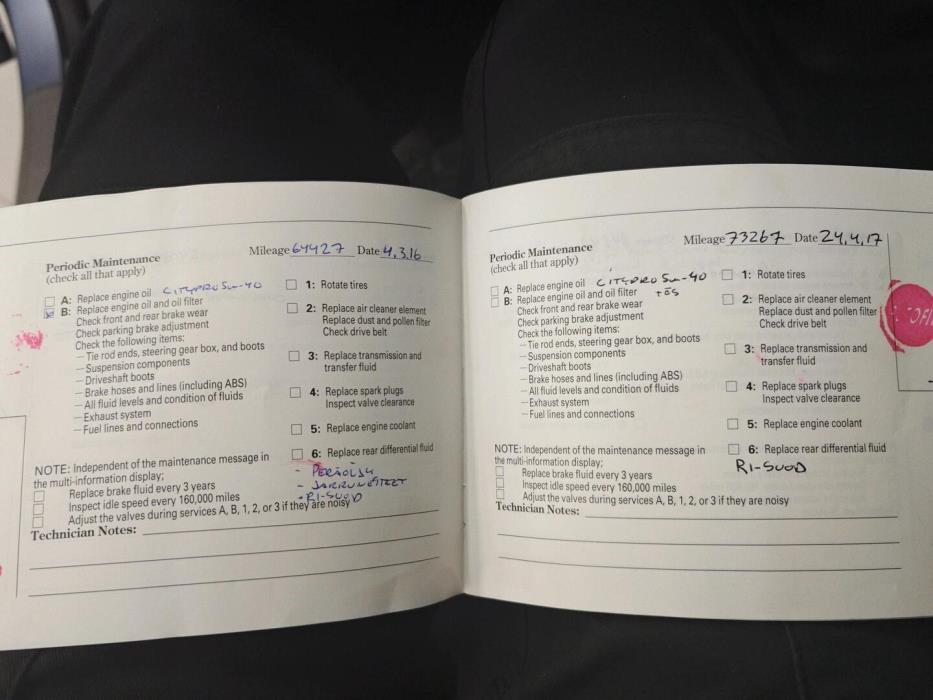 Mileage 64427 Date 4.3.16
Periodic Maintenance
(check all that apply)
A: Replace engine oil CITYPRO 5W-40
B: Replace engine oil and oil filter
Check front and rear brake wear
Check parking brake adjustment
Check the following items:
– Tie rod ends, steering gear box, and boots
– Suspension components
– Driveshaft boots
– Brake hoses and lines (including ABS)
– All fluid levels and condition of fluids
– Exhaust system
– Fuel lines and connections
1: Rotate tires
2: Replace air cleaner element
Replace dust and pollen filter
Check drive belt
3: Replace transmission and
transfer fluid
4: Replace spark plugs
Inspect valve clearance
5: Replace engine coolant
6: Replace rear differential fluid
- JARRUNESTEET
- RI-SUOD
NOTE: Independent of the maintenance message in
the multi-information display;
Replace brake fluid every 3 years
Inspect idle speed every 160,000 miles
Adjust the valves during services A, B, 1, 2, or 3 if they are noisy
Technician Notes:
Mileage 73267 Date 24.4.17
Periodic Maintenance
(check all that apply)
A: Replace engine oil CITYPRO 5W-40
B: Replace engine oil and oil filter + ÖS
Check front and rear brake wear
Check parking brake adjustment
Check the following items:
– Tie rod ends, steering gear box, and boots
– Suspension components
– Driveshaft boots
– Brake hoses and lines (including ABS)
– All fluid levels and condition of fluids
– Exhaust system
– Fuel lines and connections
1: Rotate tires
2: Replace air cleaner element
Replace dust and pollen filter
Check drive belt
3: Replace transmission and
transfer fluid
4: Replace spark plugs
Inspect valve clearance
5: Replace engine coolant
6: Replace rear differential fluid
RI-SUOD
NOTE: Independent of the maintenance message in
the multi-information display;
Replace brake fluid every 3 years
Inspect idle speed every 160,000 miles
Adjust the valves during services A, B, 1, 2, or 3 if they are noisy
Technician Notes: